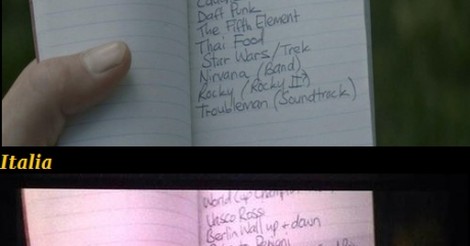 Daft Punk
The Fifth Element
Thai Food
Star Wars/Trek
Nirvana (Band)
Rocky (Rocky II?)
Troubleman (Soundtrack)
Italia
World Cup
Vasco Rossi
Berlin Wall up + down